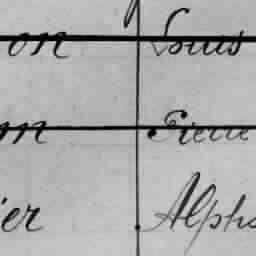 on Louis
m Pierre
ier Alpho